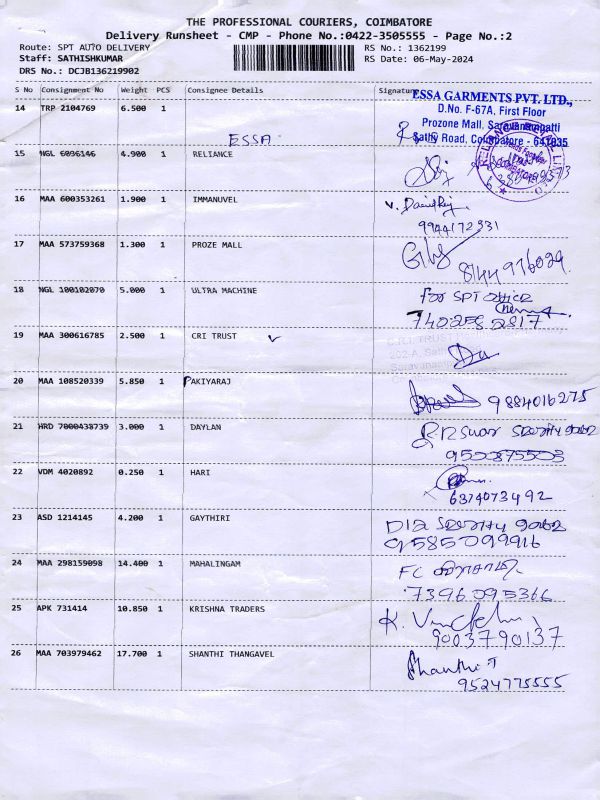 THE PROFESSIONAL COURIERS, COIMBATORE
Delivery Runsheet - CMP - Phone No.:0422-3505555 - Page No.:2
Route: SPT AUTO DELIVERY RS No.: 1362199
Staff: SATHISHKUMAR RS Date: 06-May-2024
DRS No.: DCJB136219902
S No Consignment No Weight PCS Consignee Details Signature
ESSA GARMENTS PVT. LTD.,
D.No. F-67A, First Floor
Prozone Mall, Saravanampatti
Sathi Road, Coimbatore - 641035
14 TRP 2104769 6.500 1
ESSA
15 NGL 6096146 4.900 1 RELIANCE
16 MAA 600353261 1.900 1 IMMANUVEL
9944172331
17 MAA 573759368 1.300 1 PROZE MALL
8144976029
18 NGL 100102070 5.000 1 ULTRA MACHINE For SPT office
740258 2817
19 MAA 300616785 2.500 1 CRI TRUST
C.R.I. TRUST
202-A, Sathy
20 MAA 108520339 5.850 1 PAKIYARAJ 9884016275
21 HRD 7000438739 3.000 1 DAYLAN
22 VDM 4020892 0.250 1 HARI
6374073492
23 ASD 1214145 4.200 1 GAYTHIRI
9585099916
24 MAA 298159098 14.400 1 MAHALINGAM FC
7396095366
25 APK 731414 10.850 1 KRISHNA TRADERS K.
9003790137
26 MAA 703979462 17.700 1 SHANTHI THANGAVEL Shanthi T
9524775555